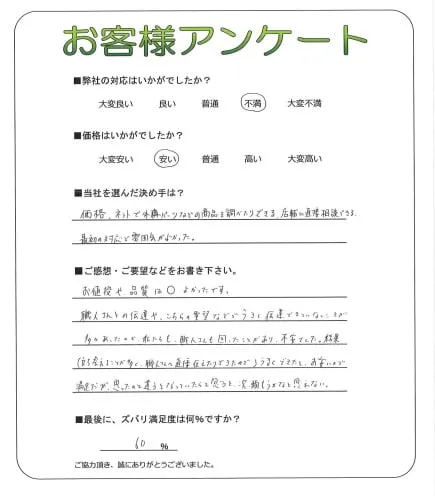 お客様アンケート
■弊社の対応はいかがでしたか？
大変良い 良い 普通 不満 大変不満
■価格はいかがでしたか？
大変安い 安い 普通 高い 大変高い
■当社を選んだ決め手は？
価格、ネットで外構パーツなどの商品を調べたりできる、店舗に直接相談できる
最初の対応で雰囲気がよかった。
■ご感想・ご要望などをお書き下さい。
お値段や品質は〇よかったです。
職人さんとの伝達や、こちらの要望などがうまく伝達できていないことが
多々あったので、私たちも、職人さんも困ったことがあり、不安でした。結果
ことが多く、職人さんに直接伝えたりできたのでうまくできたし、お安いので
満足だが、思ったのと違うとなっていたらと思うと、次頼もうかなと思えない。
■最後に、ズバリ満足度は何％ですか？
60 ％
ご協力頂き、誠にありがとうございました。